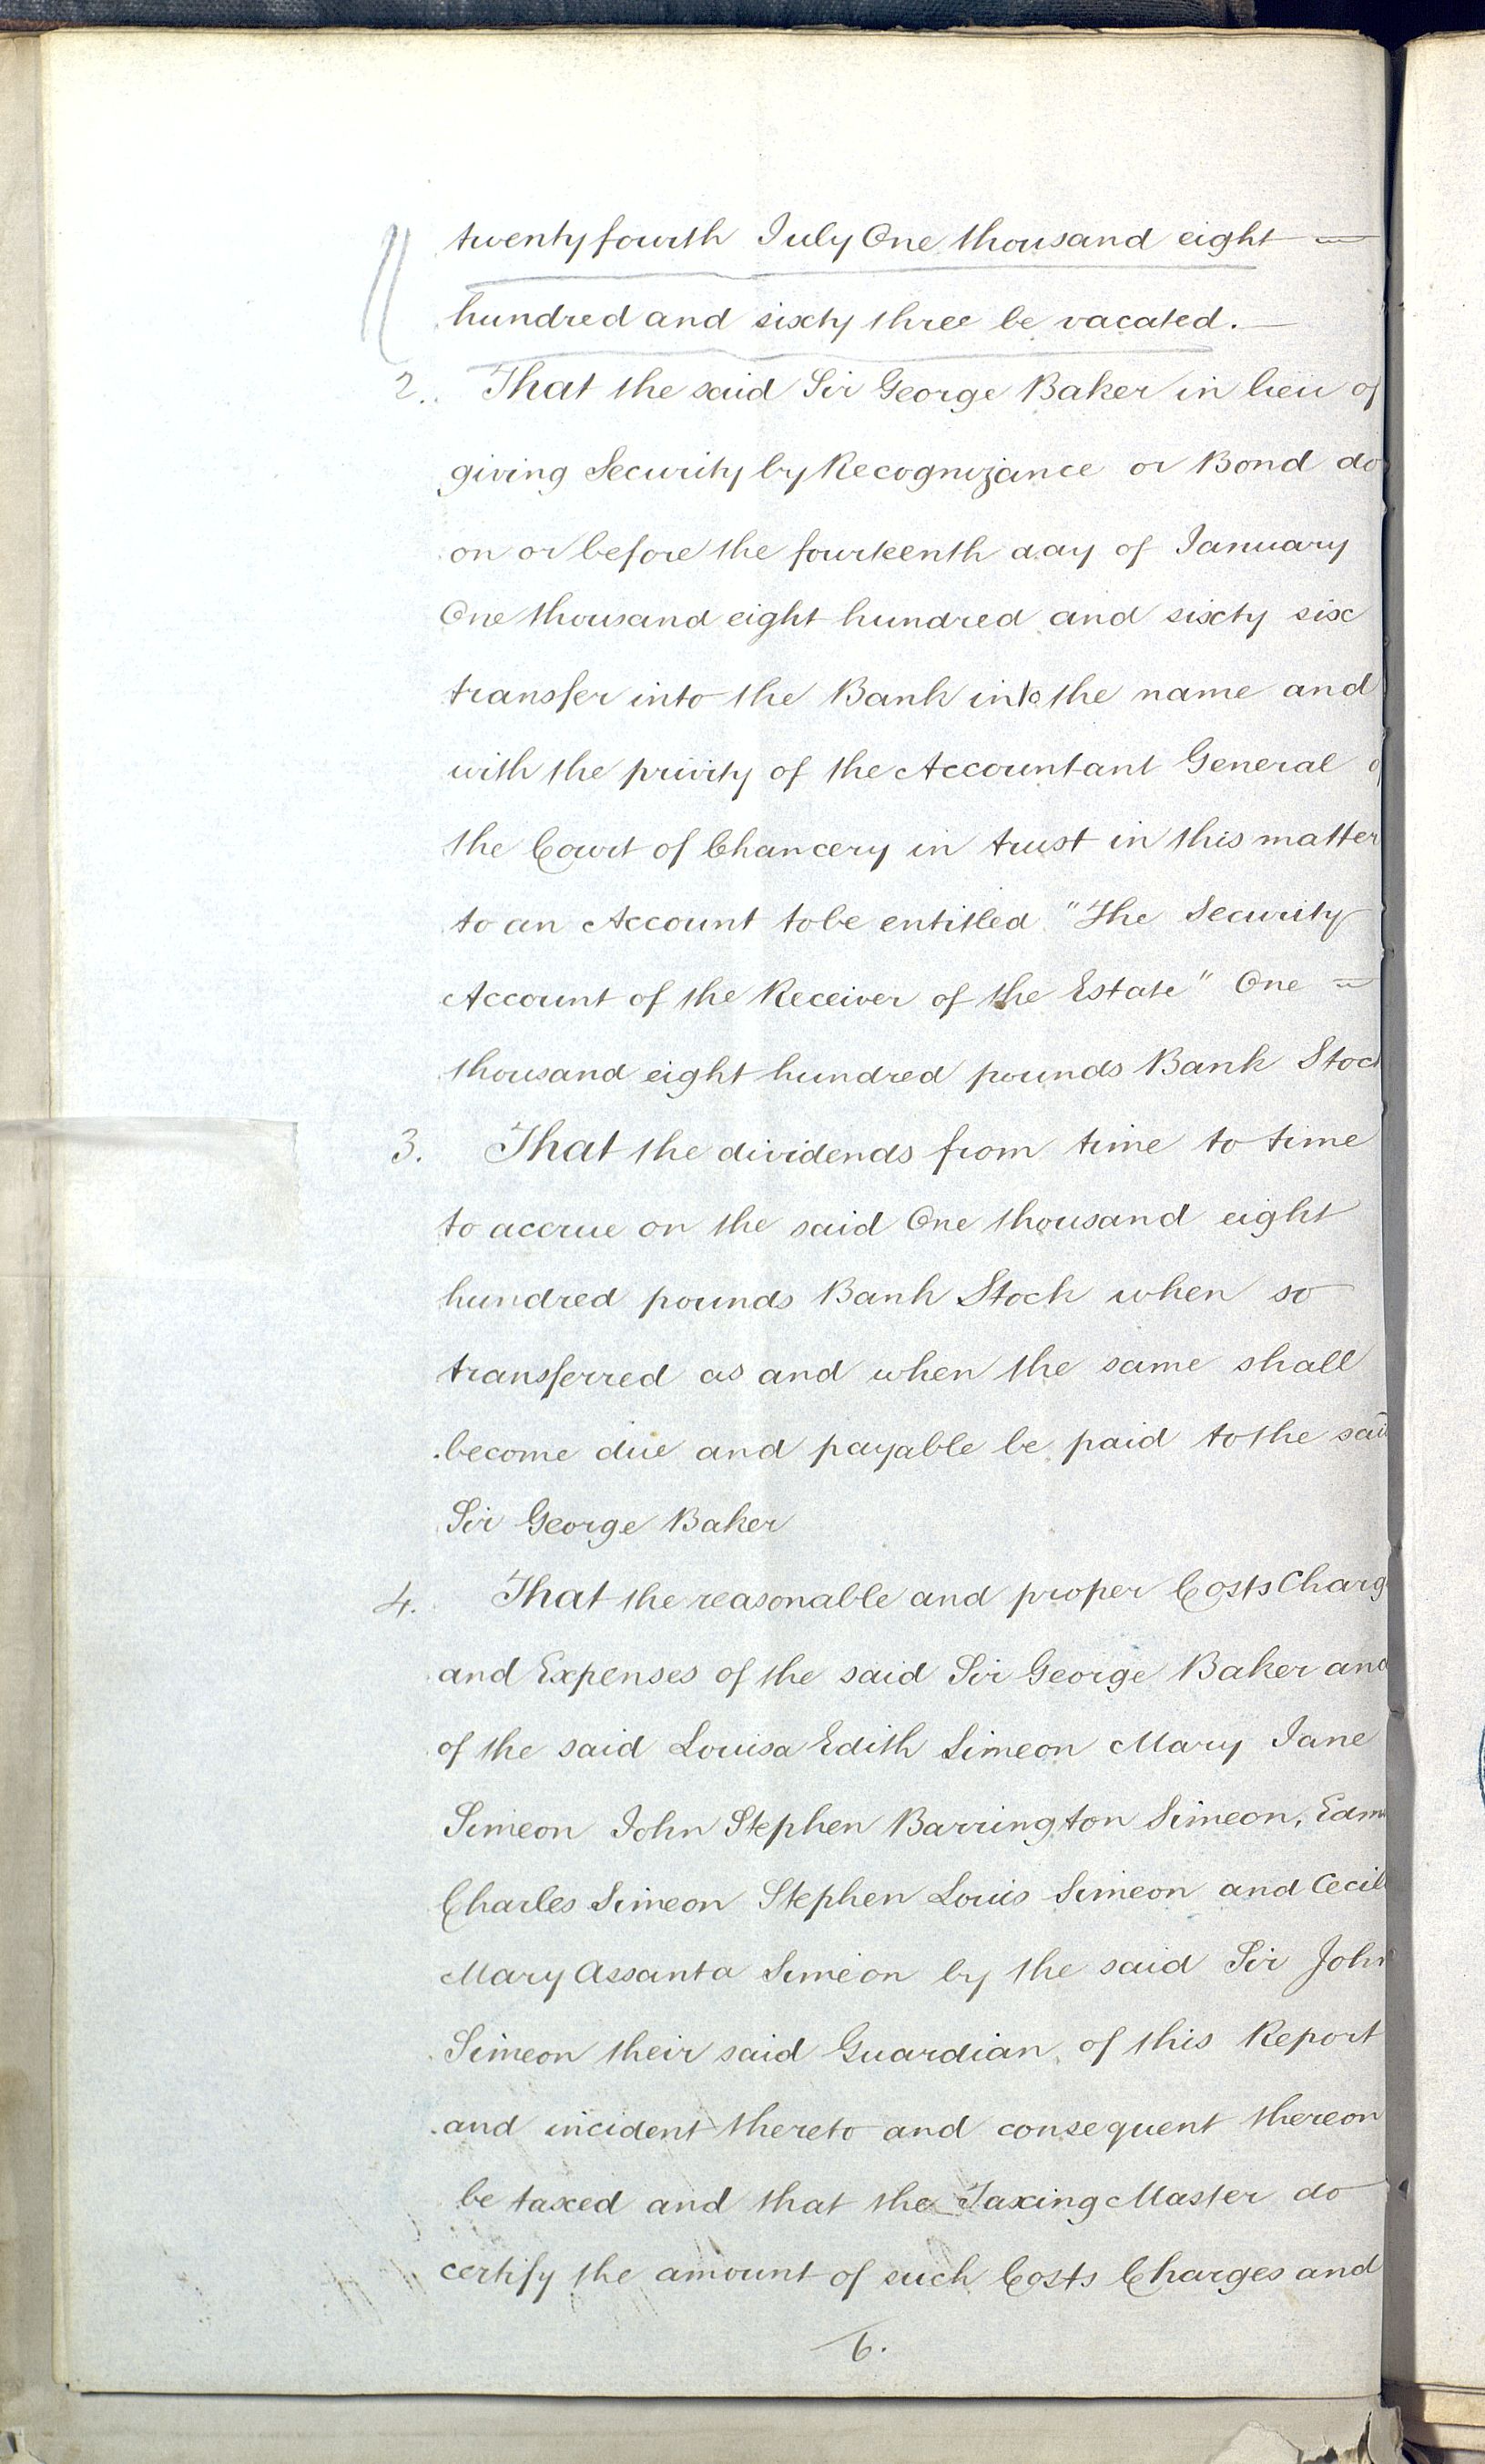 twenty fourth July One thousand eight —
hundred and sixty three be vacated. —
2. That the said Sir George Baker in lieu of
giving Security by Recognizance or Bond do
on or before the fourteenth day of January
One thousand eight hundred and sixty six
transfer into the Bank into the name and
with the privity of the Accountant General o
the Court of Chancery in trust in this matter
to an Account to be entitled "The Security
Account of the Receiver of the Estate" One =
thousand eight hundred pounds Bank Stoc
3. That the dividends from time to time
to accrue on the said One thousand eight
hundred pounds Bank Stock when so
transferred as and when the same shall
become due and payable be paid to the said
Sir George Baker
4. That the reasonable and proper Costs Charg
and Expenses of the said Sir George Baker and
of the said Louisa Edith Simeon Mary Jane
Simeon John Stephen Barrington Simeon, Edm
Charles Simeon Stephen Louis Simeon and Cecil
Mary Assanta Simeon by the said Sir John
Simeon their said Guardian of this Report
and incident thereto and consequent thereon
be taxed and that the Taxing Master do
certify the amount of such Costs Charges and
6.